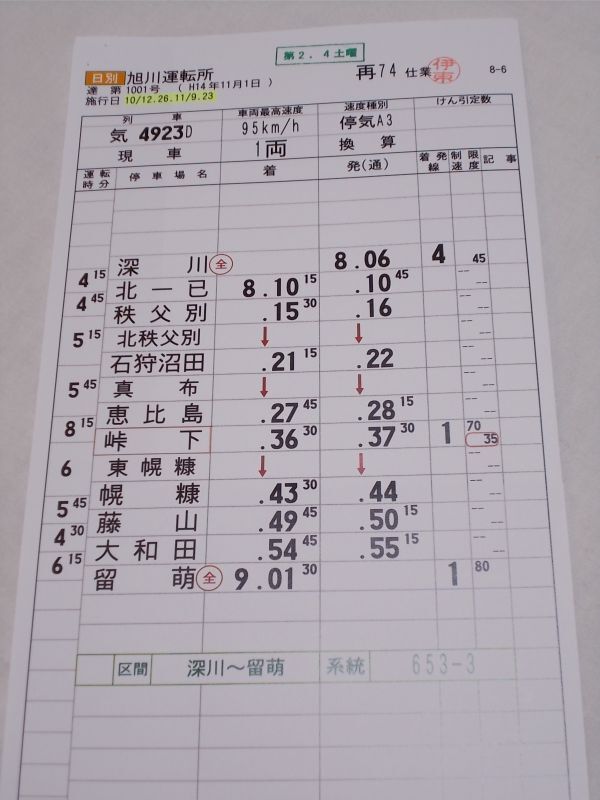 第2.4土曜
日別 旭川運転所 再74 仕業 伊東 8-6
達 第1001号 ( H14年11月1日 )
施行日 10/12.26.11/9.23
列車 車両最高速度 速度種別 けん引定数
気 4923D 95km/h 停気A3
現車 1両 換算
運転時分 停車場名 着 発(通) 着発線 制限速度 記事
深川 全 8.06 4 45
4 15
北一已 8.10 15 .10 45 --
4 45
秩父別 .15 30 .16 -- --
5 15
北秩父別 ↓ ↓ -- --
石狩沼田 .21 15 .22 -- --
5 45
真布 ↓ ↓ -- --
恵比島 .27 45 .28 15 -- --
8 15
峠下 .36 30 .37 30 1 70 35
6
東幌糠 ↓ ↓ -- --
幌糠 .43 30 .44 -- --
5 45
藤山 .49 45 .50 15 -- --
4 30
大和田 .54 45 .55 15 -- --
6 15
留萌 全 9.01 30 1 80
区間 深川～留萌 系統 653-3